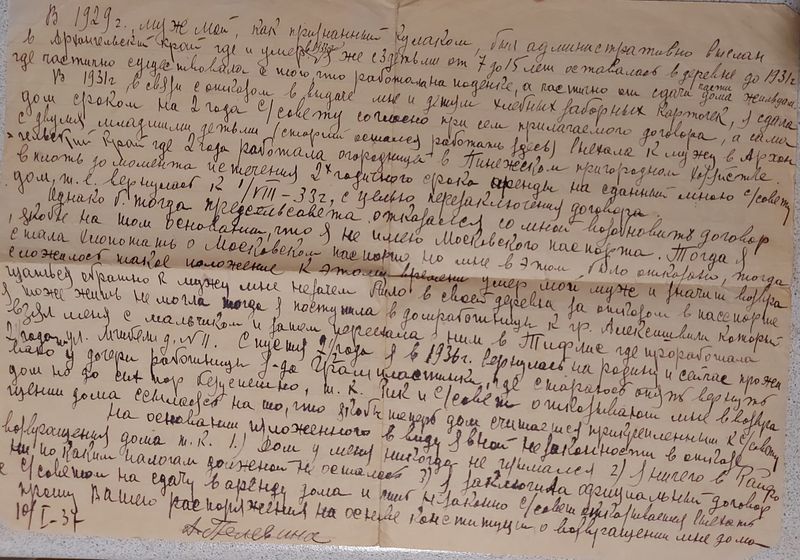 В 1929 г. муж мой, как признанный кулаком, был административно выслан
в Архангельский край где и умер. Я же с 3 детьми от 7 до 15 лет оставалась в деревне до 1931 г.
где частично существовала с того, что работала на поденке, а частично от сдачи части дома жильцам.
В 1931 г. в связи с отказом в выдаче мне и детям хлебных заборных карточек, я сдала
дом сроком на 2 года с/совету согласно при сем прилагаемого договора, а сама
с двумя младшими детьми (старший остался работать здесь) выехала к мужу в Архан
гельский край где 2 года работала огородницей в Пинежском пригородном хозяйстве
вплоть до момента истечения 2х годичного срока аренды на сданный мною с/совету
дом, т.е. вернулась к 1/VIII-33 г. с целью перезаключения договора.
Однако тогда пред. сельсовета отказался со мной возобновить договор
якобы на том основании, что я не имею Московского паспорта. Тогда я
стала хлопотать о Московском паспорте, но мне в этом было отказано, тогда
сложилось такое положение к этому времени умер мой муж и значит возвра
щаться обратно к мужу мне незачем было в своей деревне за отказом в паспорте
я тоже жить не могла тогда я поступила в домработницы к гр. Алексишвили который
взял меня с мальчиком и затем переехала с ним в Тифлис где проработала
2 года ул. д. № 11. Спустя 2 1/2 года я в 1936 г. вернулась на родину и сейчас прожи
ваю у дочери работницы з-да Грампластинки, где стараюсь опять вернуть
дом но до сих пор безуспешно, т.к. Рик и с/совет отказывают мне в возвра
щении дома ссылаясь на то, что якобы теперь дом считается прикрепленным к с/совету
На основании изложенного в виду явной незаконности в отказе
возвращения дома т.к. 1) Дом у меня никогда не отнимался 2) я ничего в Райфо
ни по каким налогам должной не осталась 3) я заключила официальный договор
с с/советом на сдачу в аренду дома и незаконно с/совет отказывается
прошу Вашего распоряжения на основе конституции о возвращении мне дома
10/I-37
А. Пелевина